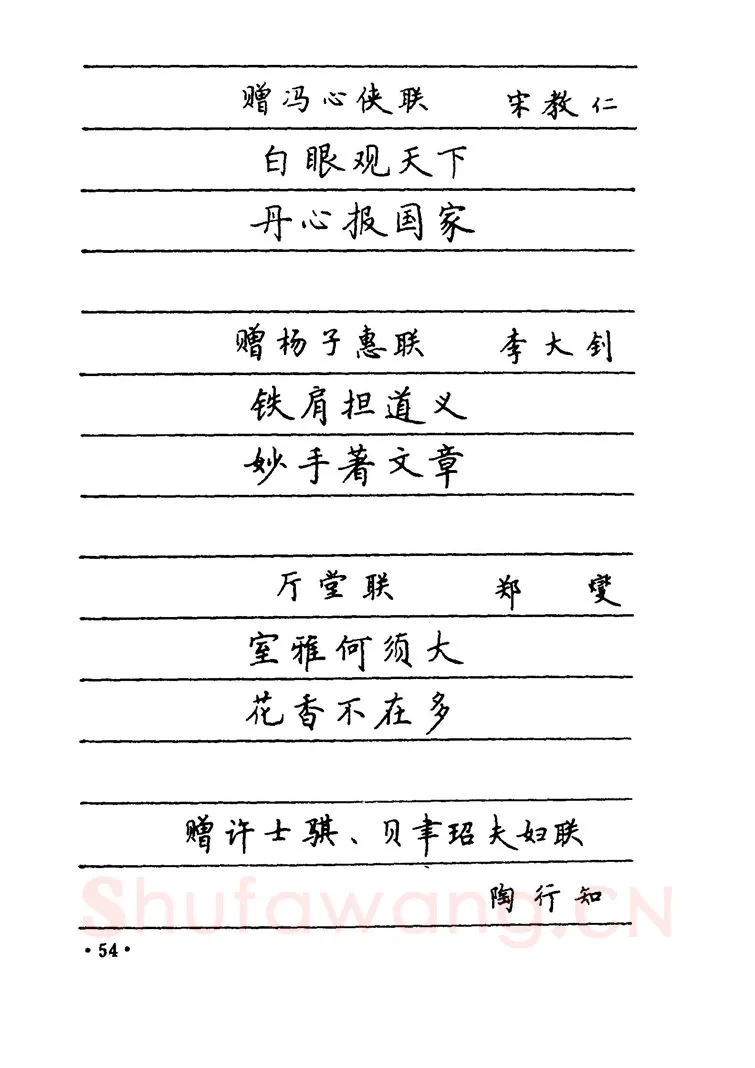 赠冯心侠联 宋教仁
白眼观天下
丹心报国家
赠杨子惠联 李大钊
铁肩担道义
妙手著文章
厅堂联 郑 燮
室雅何须大
花香不在多
赠许士骐、贝聿玿夫妇联
陶行知
Shufawang.CN
·54·